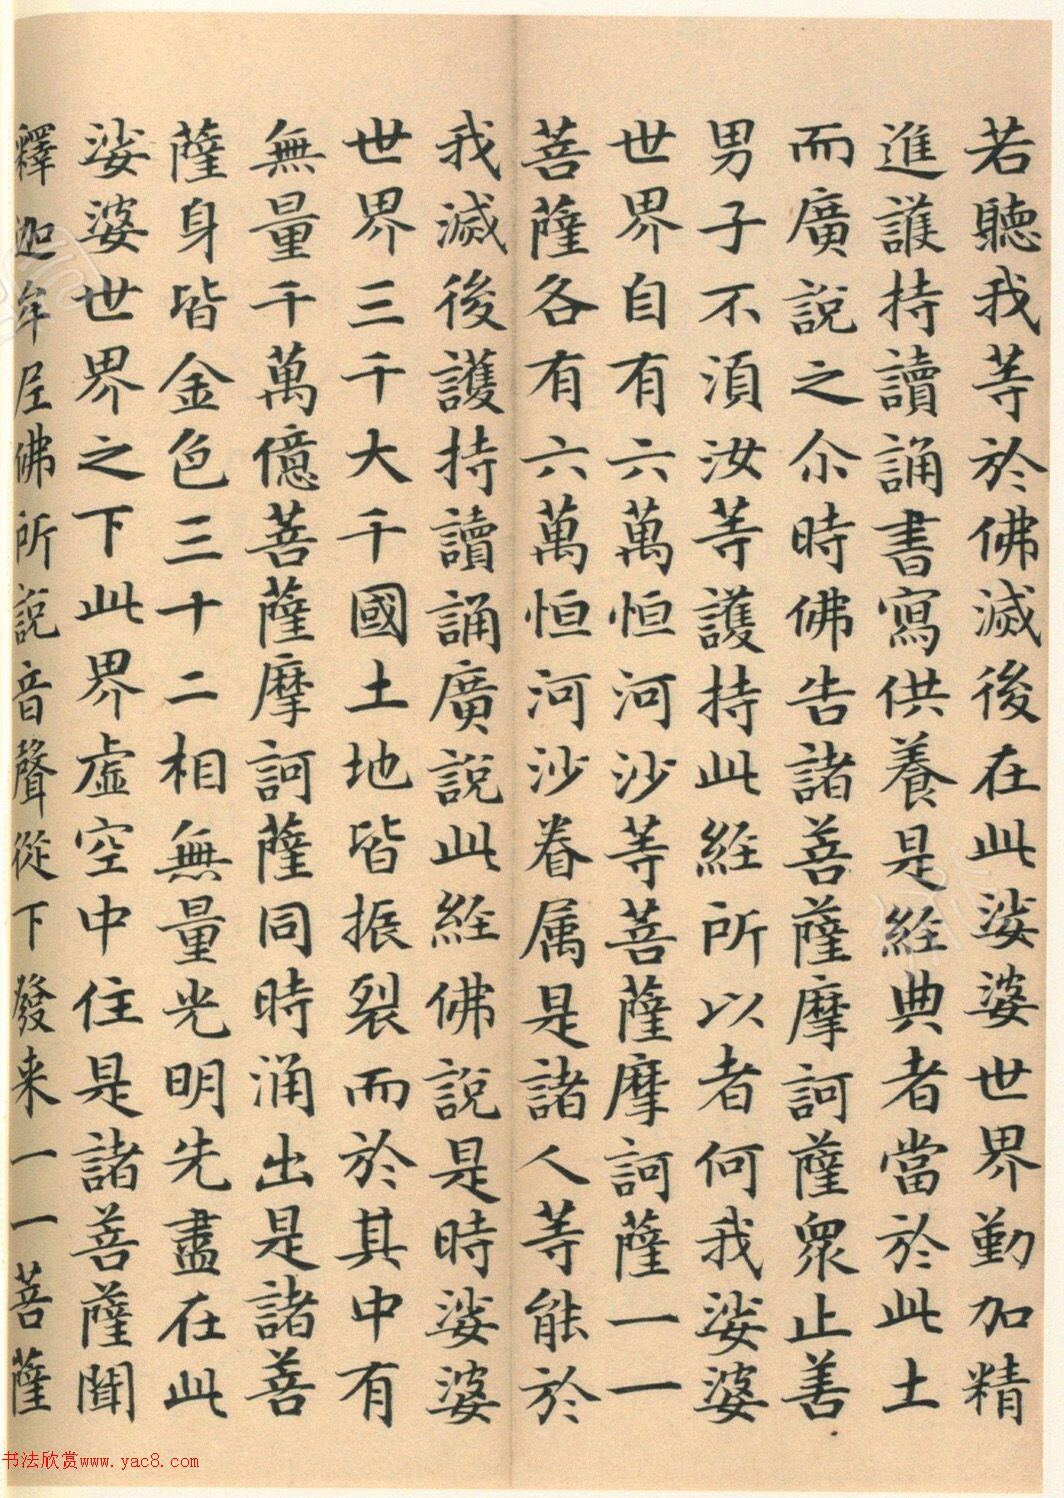 若聽我等於佛滅後在此娑婆世界勤加精
進護持讀誦書寫供養是經典者當於此土
而廣說之尒時佛告諸菩薩摩訶薩眾止善
男子不湏汝等護持此經所以者何我娑婆
世界自有六萬恒河沙等菩薩摩訶薩一一
菩薩各有六萬恒河沙眷属是諸人等能於
我滅後護持讀誦廣說此經佛說是時娑婆
世界三千大千國土地皆振裂而於其中有
無量千萬億菩薩摩訶薩同時涌出是諸菩
薩身皆金色三十二相無量光明先盡在此
娑婆世界之下此界虛空中住是諸菩薩聞
釋迦牟尼佛所說音聲從下發来一一菩薩
书法欣赏www.yac8.com